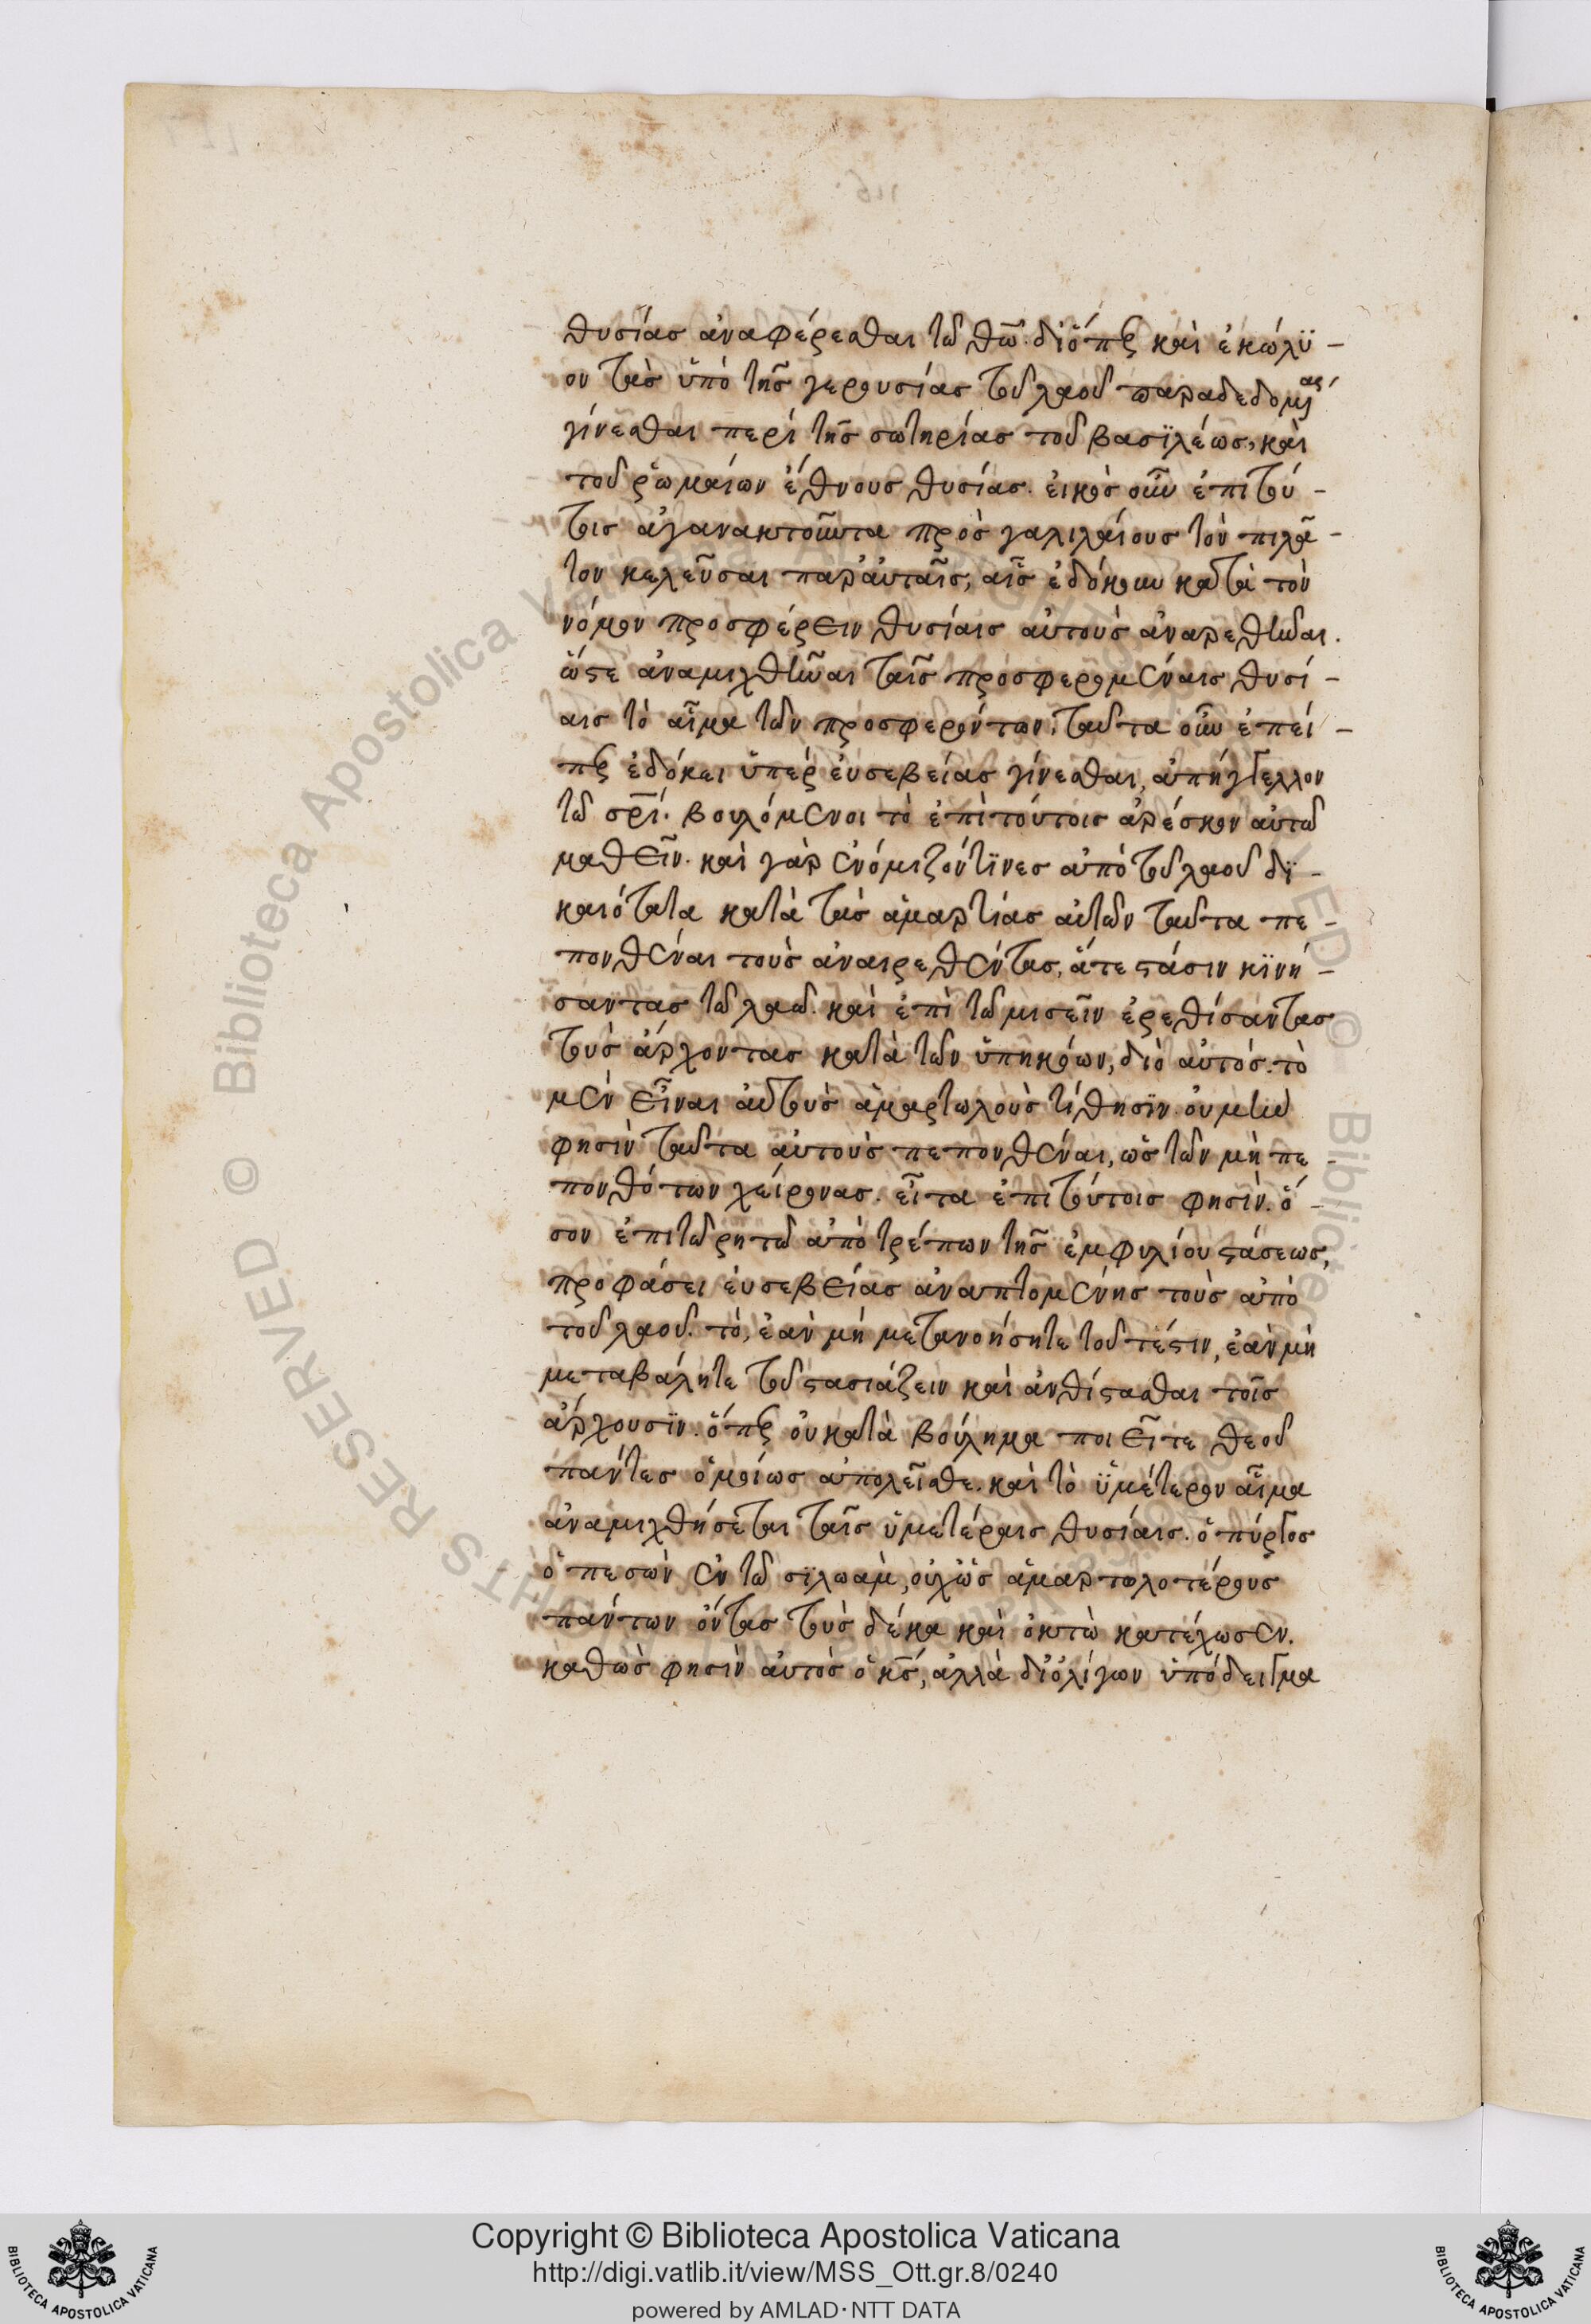 θυσίας ἀναφέρεσθαι τῶ θῶ. διόπερ καὶ ἐκώλϋ-
ον τὰς ὑπὸ τῆς γερουσίας τοῦ λαοῦ παραδεδομένας
γίνεσθαι περὶ τῆς σωτηρίας τοῦ βασϊλέως, καὶ
τοῦ ῥωμαίων ἔθνους θυσίας. εἰκὸς οὖν ἐπὶ τού-
τοις ἀγανακτοῦντα πρὸς γαλιλαίους τὸν πιλᾶ-
τον κελεῦσαι παρ' αὐταῖς, αἷς ἐδόκουν κατὰ τὸν
νόμον προσφέρειν θυσίαις αὐτοὺς ἀναιρεθῆναι.
ὥστε ἀναμιχθῆναι ταῖς προσφερομέναις θυσί-
αις τὸ αἷμα τῶν προσφερόντων. ταῦτα οὖν ἐπεί-
περ ἐδόκει ὑπὲρ εὐσεβείας γίνεσθαι, ἀπήγγελλον
τῶ σρι. βουλόμενοι τὸ ἐπὶ τούτοις ἀρέσκον αὐτῶ
μαθεῖν. καὶ γὰρ ἐνόμιζόν τϊνες ἀπὸ τοῦ λαοῦ δϊ-
καιότατα κατὰ τὰς ἁμαρτίας αὐτῶν ταῦτα πε-
πονθέναι τοὺς ἀναιρεθέντας, ἅτε στάσιν κϊνή-
σαντας τῶ λαῶ. καὶ ἐπὶ τῶ μισεῖν ἐρεθίσαντας
τοὺς ἄρχοντας κατὰ τῶν ὑπηκόων, διὸ αὐτός. τὸ
μὲν εἶναι αὐτοὺς ἁμαρτωλοὺς τίθησϊν. οὐ μὴν
φησὶν ταῦτα αὐτοὺς πεπονθέναι, ὡς τῶν μὴ πε-
πονθότων χείρονας. εἶτα ἐπὶ τούτοις φησίν. ὅ-
σον ἐπὶ τῶ ῥητῶ ἀποτρέπων τῆς ἐμφυλίου στάσεως,
προφάσει εὐσεβείας ἀναπτομένης τοὺς ἀπὸ
τοῦ λαοῦ. τὸ, ἐὰν μὴ μετανοήσητε τουτέστιν, ἐὰν μὴ
μεταβάλητε τοῦ στασιάζειν καὶ ἀνθίστασθαι τοῖς
ἄρχουσϊν. ὅπερ οὐ κατὰ βούλημα ποιεῖτε θεοῦ
πάντες ὁμοίως ἀπολεῖσθε. καὶ τὸ ὑμέτερον αἷμα
ἀναμιχθήσεται ταῖς ὑμετέραις θυσίαις. ὁ πύργος
ὁ πεσὼν ἐν τῶ σϊλωὰμ, οὐχ ὡς ἁμαρτωλοτέρους
πάντων ὄντας τοὺς δέκα καὶ ὀκτὼ κατέχωσεν.
καθὼς φησὶν αὐτὸς ὁ κς, ἀλλὰ δι' ὀλίγων ὑπόδειγμα
Copyright © Biblioteca Apostolica Vaticana
http://digi.vatlib.it/view/MSS_Ott.gr.8/0240
powered by AMLAD·NTT DATA
BIBLIOTECA APOSTOLICA VATICANA
BIBLIOTECA APOSTOLICA VATICANA